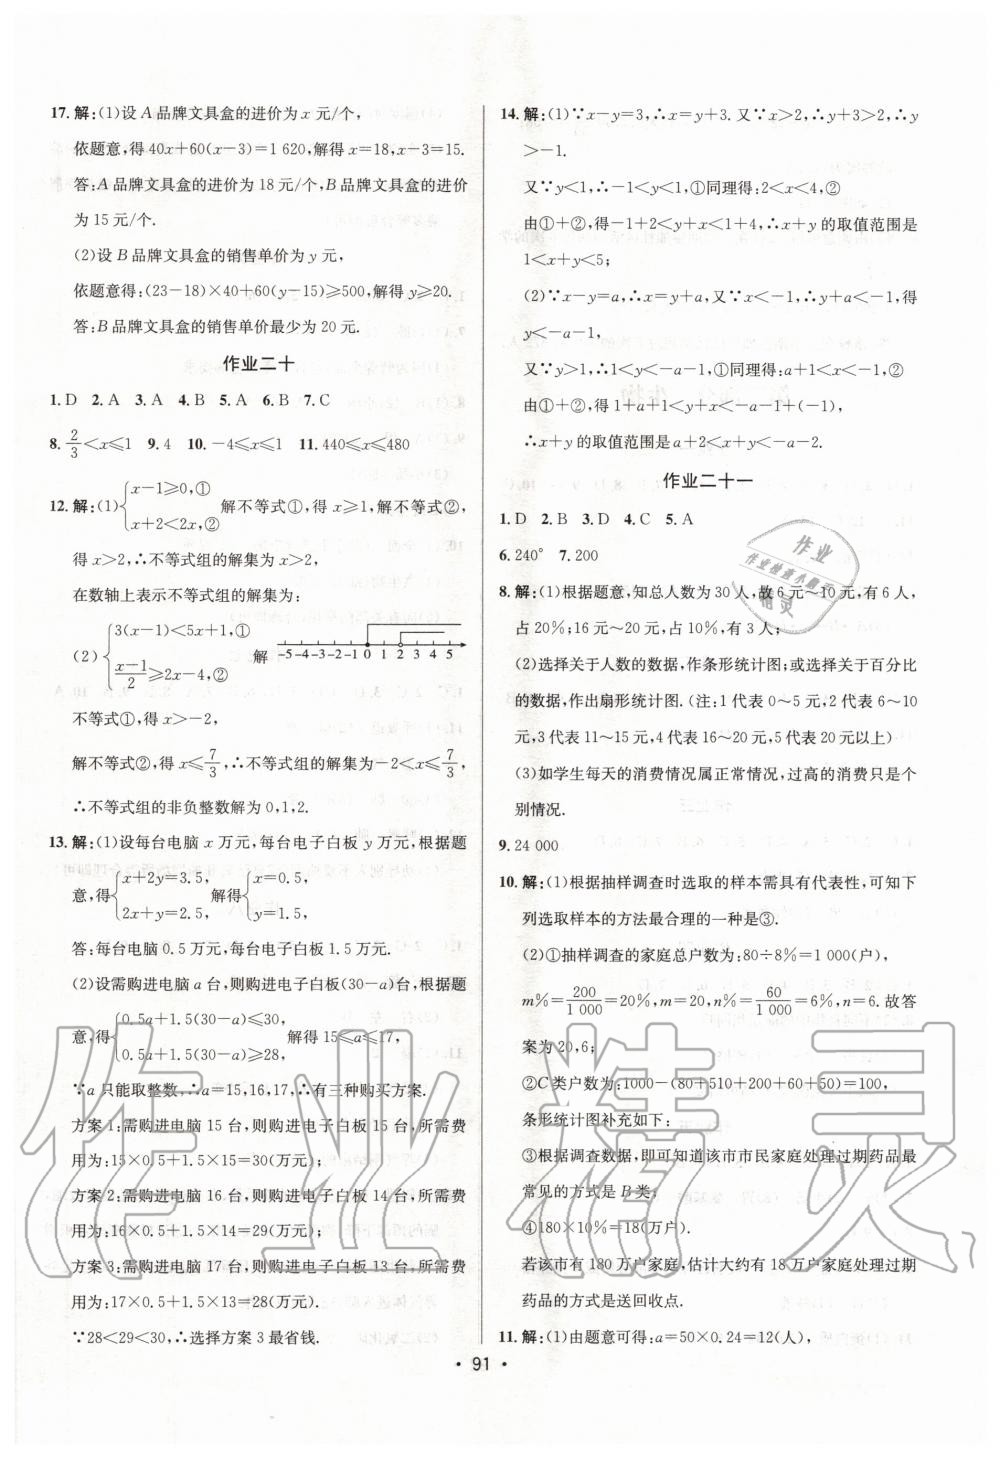 17. 解:(1)设 A 品牌文具盒的进价为 x 元/个,
依题意,得 40x+60(x-3)=1 620,解得 x=18,x-3=15.
答:A 品牌文具盒的进价为 18 元/个,B 品牌文具盒的进价
为 15 元/个.
(2)设 B 品牌文具盒的销售单价为 y 元,
依题意得:(23-18)×40+60(y-15)≥500,解得 y≥20.
答:B 品牌文具盒的销售单价最少为 20 元.
作业二十
1. D 2. A 3. A 4. B 5. A 6. B 7. C
8. 2/3<x≤1 9. 4 10. -4≤x≤1 11. 440≤x≤480
12. 解:(1){x-1≥0,① x+2<2x,② 解不等式①,得 x≥1,解不等式②,
得 x>2,∴不等式组的解集为 x>2,
在数轴上表示不等式组的解集为:
(2){3(x-1)<5x+1,① (x-1)/2≥2x-4,② 解 -5-4-3-2-1 0 1 2 3 4 5
不等式①,得 x>-2,
解不等式②,得 x≤7/3,∴不等式组的解集为-2<x≤7/3,
∴不等式组的非负整数解为 0,1,2.
13. 解:(1)设每台电脑 x 万元,每台电子白板 y 万元,根据题
意,得{x+2y=3.5, 2x+y=2.5, 解得{x=0.5, y=1.5,
答:每台电脑 0.5 万元,每台电子白板 1.5 万元.
(2)设需购进电脑 a 台,则购进电子白板(30-a)台,根据题
意,得{0.5a+1.5(30-a)≤30, 0.5a+1.5(30-a)≥28, 解得 15≤a≤17,
∵a 只能取整数,∴a=15,16,17,∴有三种购买方案.
方案 1:需购进电脑 15 台,则购进电子白板 15 台,所需费
用为:15×0.5+1.5×15=30(万元),
方案 2:需购进电脑 16 台,则购进电子白板 14 台,所需费
用为:16×0.5+1.5×14=29(万元),
方案 3:需购进电脑 17 台,则购进电子白板 13 台,所需费
用为:17×0.5+1.5×13=28(万元),
∵28<29<30,∴选择方案 3 最省钱.
14. 解:(1)∵x-y=3,∴x=y+3. 又∵x>2,∴y+3>2,∴y
>-1.
又∵y<1,∴-1<y<1,①同理得:2<x<4,②
由①+②,得-1+2<y+x<1+4,∴x+y 的取值范围是
1<x+y<5;
(2)∵x-y=a,∴x=y+a,又∵x<-1,∴y+a<-1,得
y<-a-1,
又∵y>1,∴1<y<-a-1,①同理得:a+1<x<-1,②
由①+②,得 1+a+1<y+x<-a-1+(-1),
∴x+y 的取值范围是 a+2<x+y<-a-2.
作业二十一
1. D 2. B 3. D 4. C 5. A
6. 240° 7. 200
8. 解:(1)根据题意,知总人数为 30 人,故 6 元~10 元,有 6 人,
占 20%;16 元~20 元,占 10%,有 3 人;
(2)选择关于人数的数据,作条形统计图;或选择关于百分比
的数据,作出扇形统计图.(注:1 代表 0~5 元,2 代表 6~10
元,3 代表 11~15 元,4 代表 16~20 元,5 代表 20 元以上)
(3)如学生每天的消费情况属正常情况,过高的消费只是个
别情况.
9. 24 000
10. 解:(1)根据抽样调查时选取的样本需具有代表性,可知下
列选取样本的方法最合理的一种是③.
(2)①抽样调查的家庭总户数为:80÷8%=1000(户),
m%=200/1 000=20%,m=20,n%=60/1 000=6%,n=6.故答
案为 20,6;
②C 类户数为:1000-(80+510+200+60+50)=100,
条形统计图补充如下:
③根据调查数据,即可知道该市市民家庭处理过期药品最
常见的方式是 B 类;
④180×10%=18(万户).
若该市有 180 万户家庭,估计大约有 18 万户家庭处理过期
药品的方式是送回收点.
11. 解:(1)由题意可得:a=50×0.24=12(人),
• 91 •
作业
作业检查小助手
精灵
作业精灵